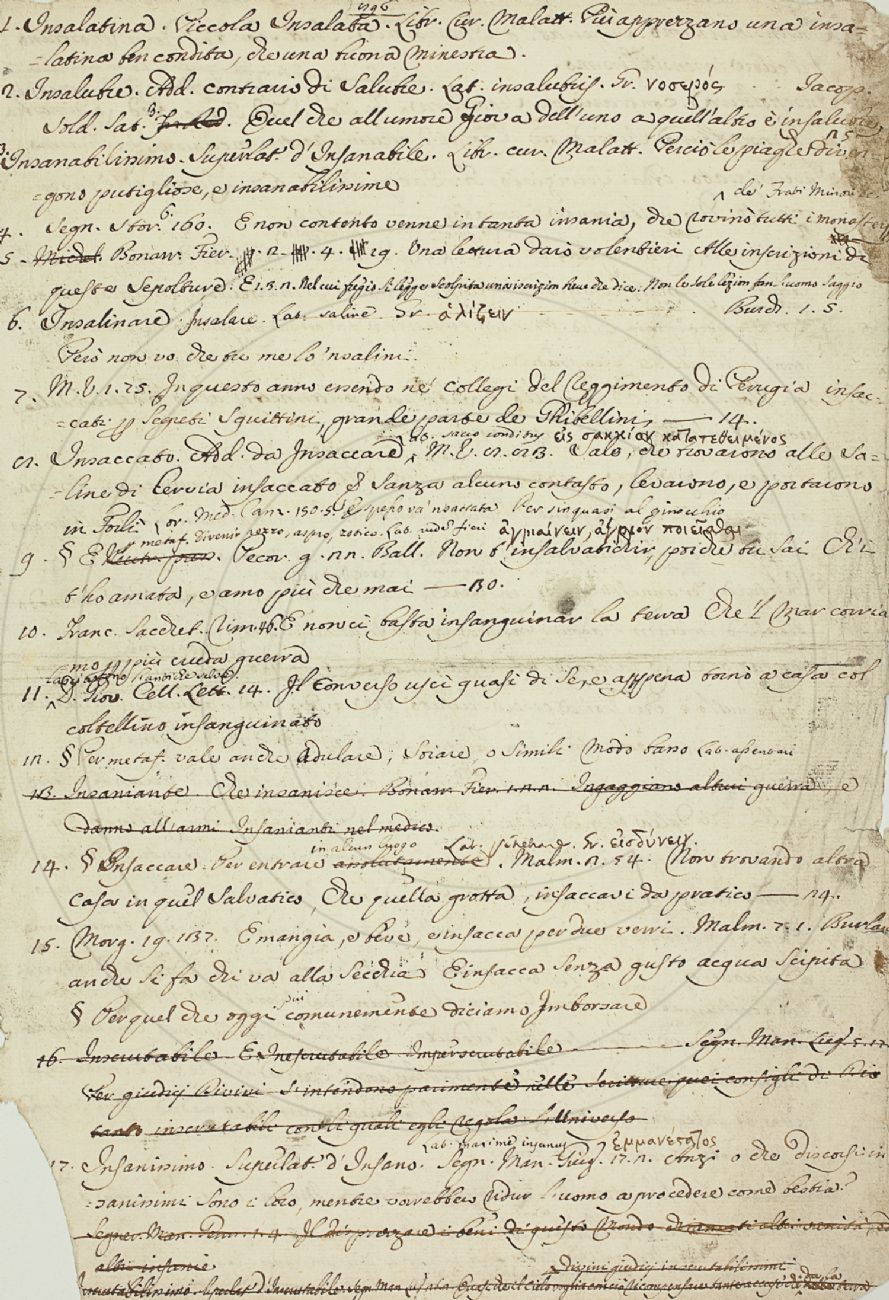 1. Insalatina. Piccola Insalata. Libr. Cur. Malatt. Più apprezzano una insa=
=latina ben condita, che una buona minestra.
2. Insalubre. Add. contrario di Salubre. Lat. insalubris. Gr. νοσερός Iacop.
Sold. Sat. 3. Quel che all umore giova dell'uno a quell'altro è insalubre
3. Insanabilissimo. Superlat. d'Insanabile. Libr. cur. Malatt. Perciò le piaghe diven
=gono putigliose, e insanabilissime
de' Frati Minori
4. Segn. Stor. 6. 160. E non contento venne in tanta insania, che rovinò tutti i monasteri
5. Michel. Bonarr. Fier. 4. 19. Una lettura darò volentieri Alle inscrizioni di
queste Sepolture. E 1. 3. 2. Nel cui fregio si legge scolpita una iscrizion breve che dice. Non le sole lezion fan l'uomo saggio
6. Insalinare. Insalare. Lat. salire. Gr. ἁλίζειν Burch. 1. 5.
Però non vo che tu me lo 'nsalini.
7. M. V. 1. 75. In questo anno essendo ne' collegi del Reggimento di Perugia insac-
=cati segreti Squittini, grande parte de Ghibellini, — 14.
Lat. sacco conditus εἰς σακκίον κατατεθειμένος
Insaccato. Add. da Insaccare. M. V. Sale, che trovarono alle Sa-
=line di Cervia insaccato Sanza alcuno contasto, levarono, e portarono
in Forlì Lor. Med. canz. Per sinquasi al ginocchio
metaf. divenir rozzo, aspro, zotico. Lat. rudem fieri ἀγριαίνειν, ἄγριον ποιεῖσθαι
9. § E Pecor. g. 22. Ball. Non t'insalvatichir, poiche tu sai Ch'i
t'ho amata, e amo più che mai —
10. Franc. Sacchet. rim. 46. E non ci basta insanguinar la terra Che 'l Mar corria
mo più cruda guerra
11. D. Gio. Cell. Lett. 14. Il Converso uscì quasi di Se, e appena tornò a casa col
coltellino insanguinato
12. § Per metaf. vale anche adulare; Soiare, o simili Modo basso Lat. assentari
13. Insaniante. Che insanisce. Bonarr. Fier. 1. 2. 2. Ingaggiano altrui guerra, e
danno all'armi Insanianti nel medico.
in alcun luogo Lat. Gr. εἰσδύνειν.
14. § Insaccare. Per entrare assolutamente. Malm. 2. 54. Non trovando altra
Casa in quel Salvatico, Che quella grotta, insaccavi da pratico — 24.
15. Morg. 19. 137. E mangia, e beve, e insacca per due verri. Malm. 7. 1. Burlar
anche si fa chi va alla Secchia E insacca senza gusto acqua scipita
§ Per quel che oggi più comunemente diciamo Imborsare
16. Inscrutabile E Inescrutabile Imperscrutabile Segn. Man. Lug. 5.
Per giudicj Divini s'intendono parimente nelle Scritture quei consigli di Dio
tanto inscrutabili con li quali egli regola l'Universo
Lat. maxime insanus Gr. ἐμμανέστατος
17. Insanissimo. Superlat. d'Insano. Segn. Man. Giug. 17. 2. Anzi o che discorsi in
=sanissimi sono i loro, mentre vorrebber ridur l'uomo a procedere come bestia?
Segner. Man. Genn. 1. 4. Il disprezzare i beni di questo Mondo chiamati altri vanità,
altri insanie
Divini giudicj inscrutabilissimi
Inscrutabilissimo. Superlat. d'Inscrutabile Segn. Man.